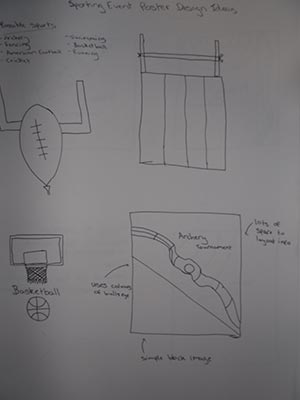 Sporting Event Poster Design Ideas
Possible Sports
- Archery
- Fencing
- American Football
- Cricket
- Swimming
- Basketball
- Running
Archery
Tournament
lots of
space to
layout info
uses colours
of bullseye
Basketball
simple block image